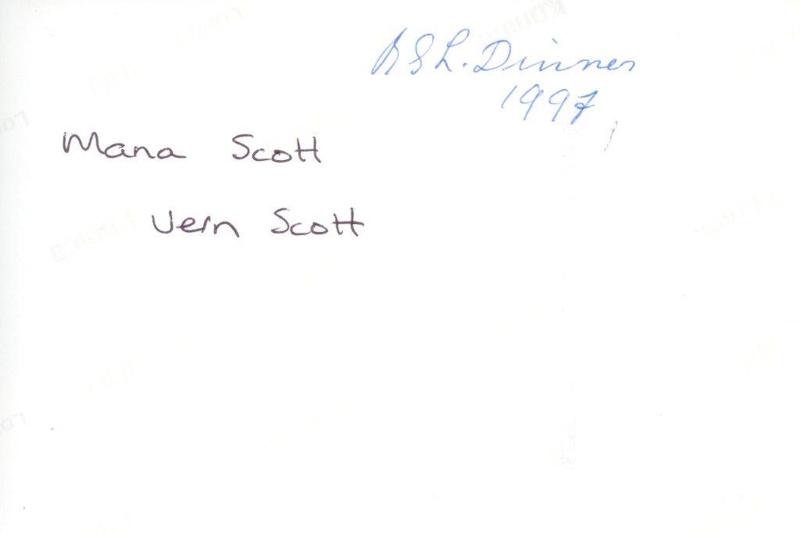 RSL. Dinner
1997
Mana Scott
Vern Scott